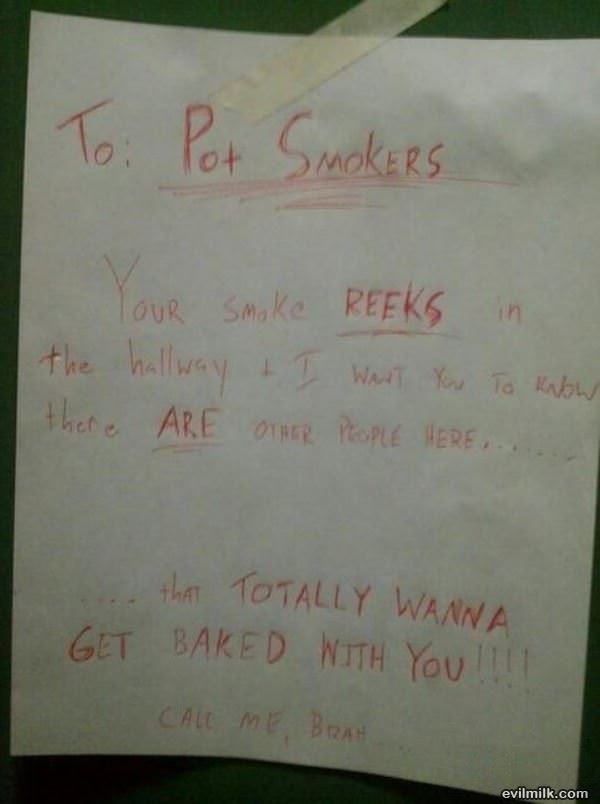 To: Pot SMOKERS
YOUR SMoKe REEKS in
the hallway + I WANT You To KNOW
there ARE OTHER PEOPLE HERE.......
.... thAT TOTALLY WANNA
GET BAKED WITH YOU!!!!
CALL ME, BRAH
evilmilk.com